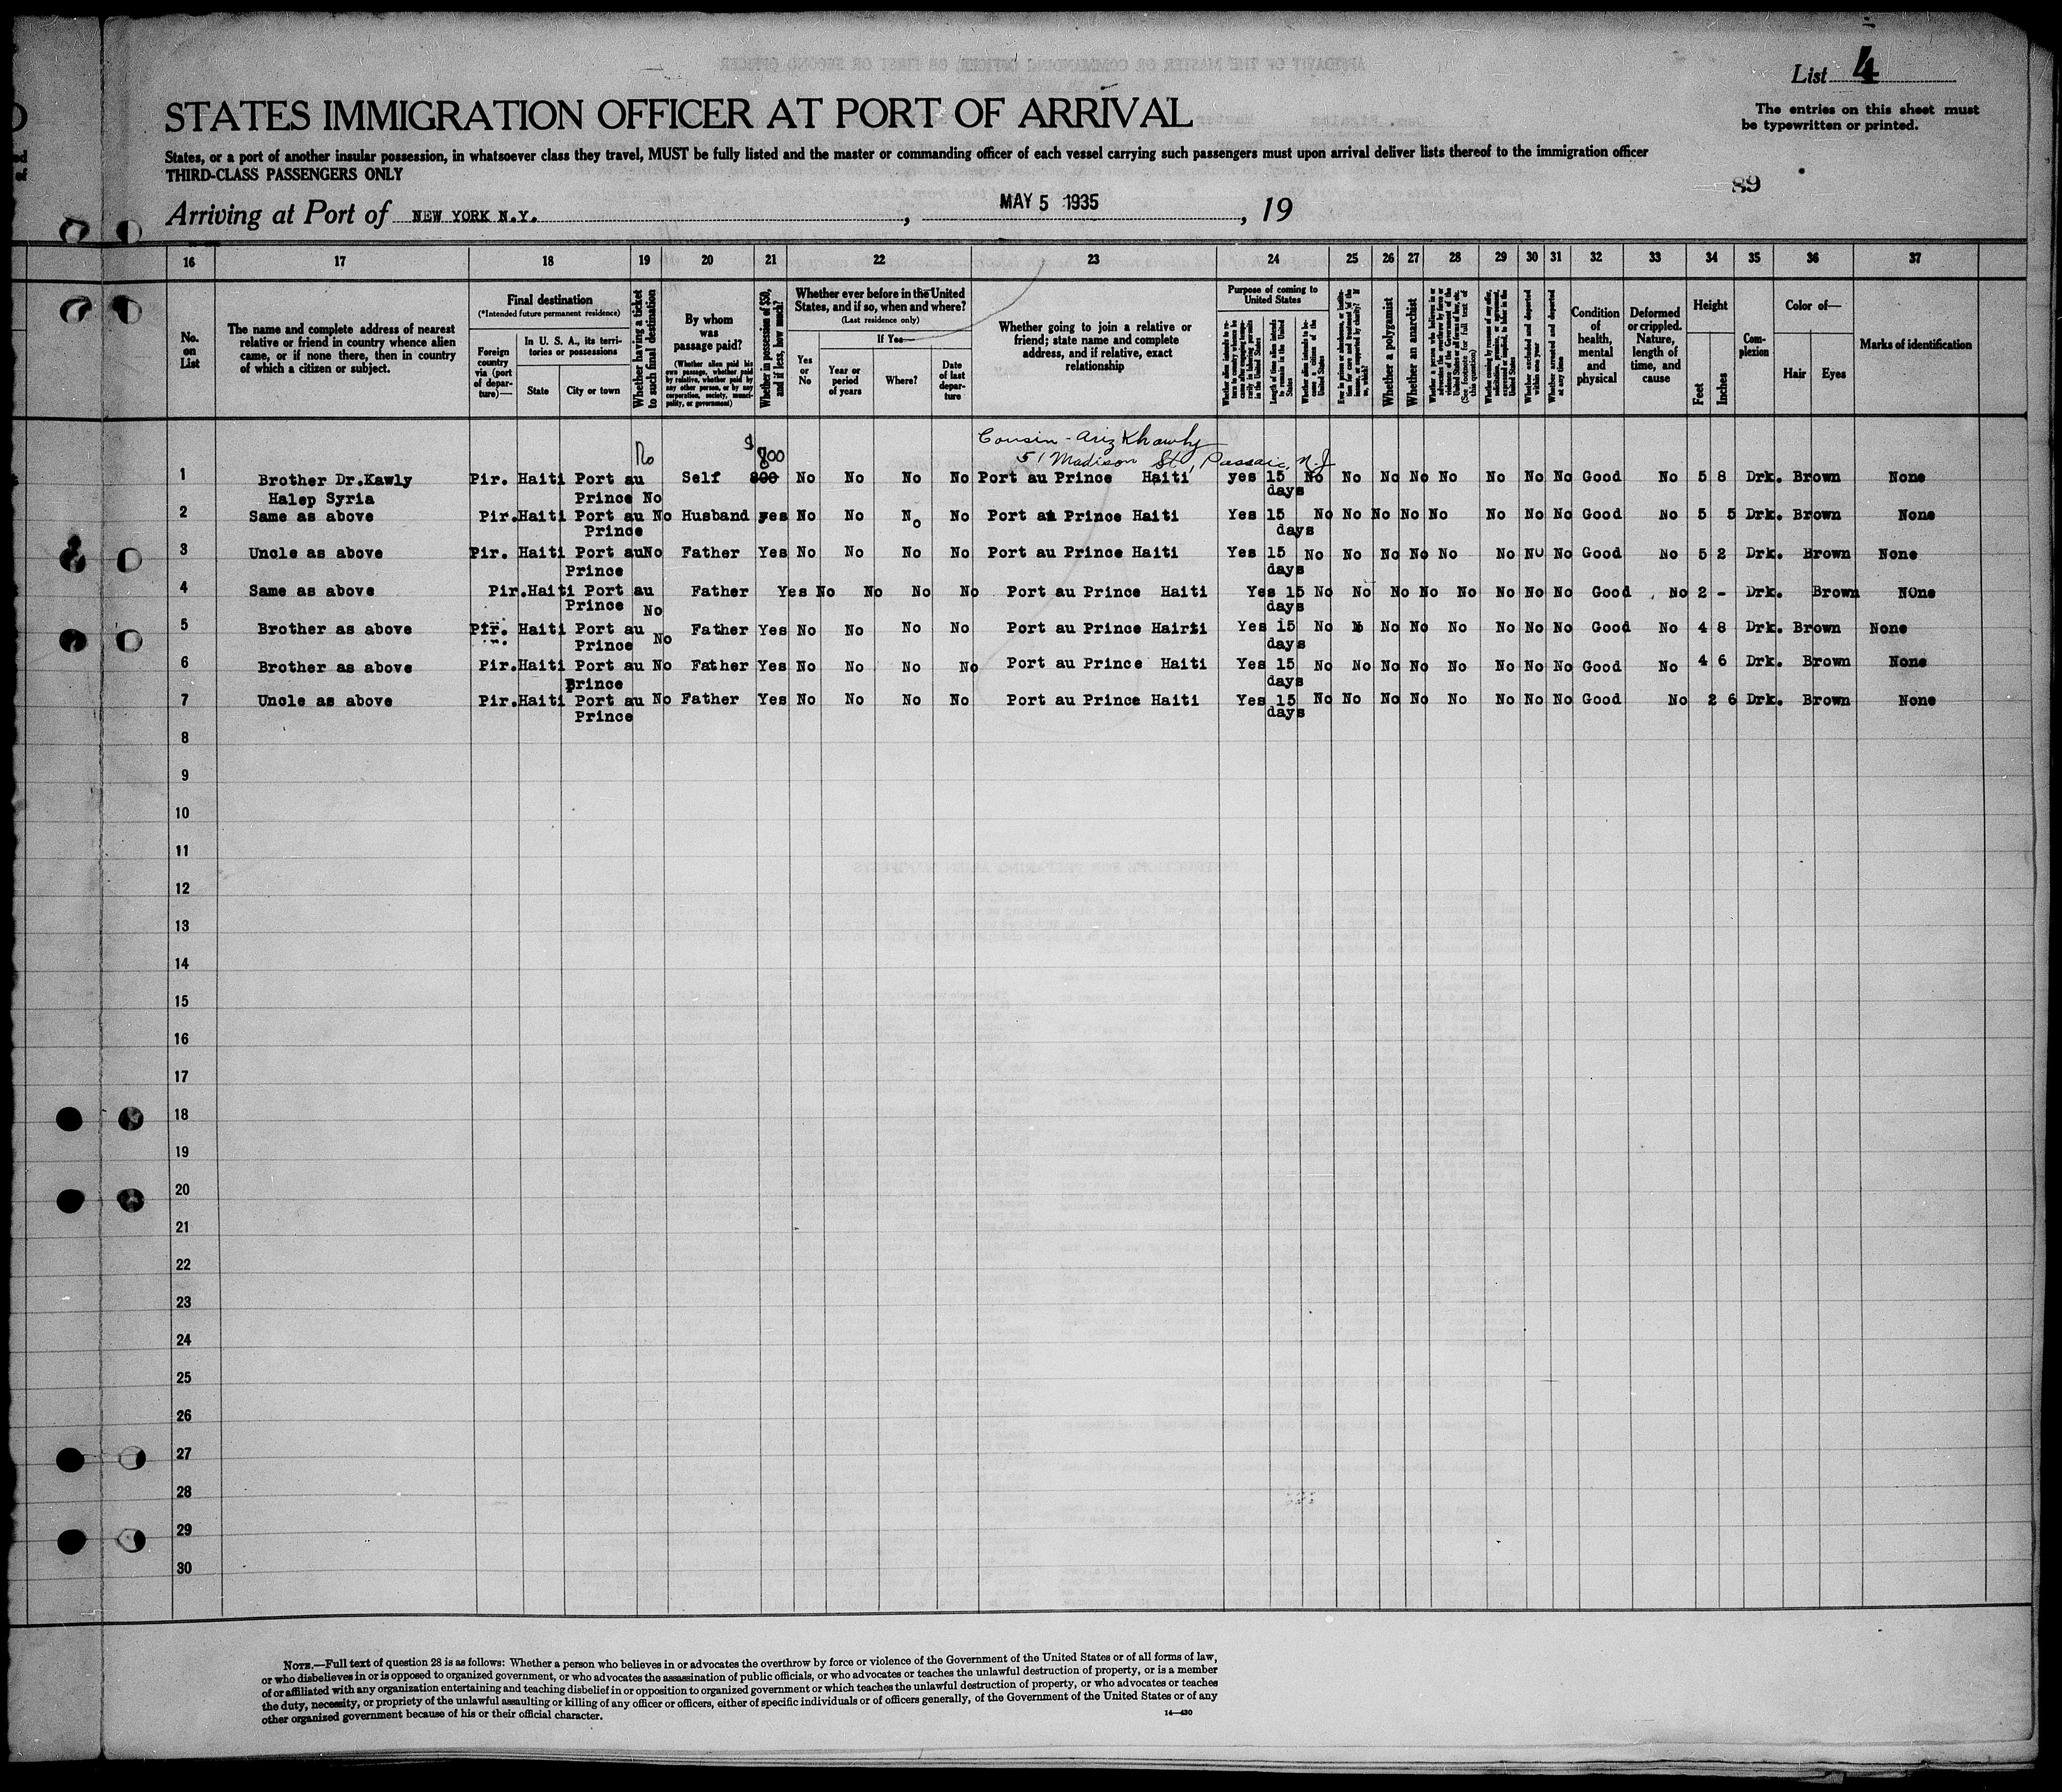 List 4
STATES IMMIGRATION OFFICER AT PORT OF ARRIVAL
The entries on this sheet must
be typewritten or printed.
States, or a port of another insular possession, in whatsoever class they travel, MUST be fully listed and the master or commanding officer of each vessel carrying such passengers must upon arrival deliver lists thereof to the immigration officer
THIRD-CLASS PASSENGERS ONLY
89
Arriving at Port of NEW YORK N.Y. , MAY 5 1935 , 19
16 17 18 19 20 21 22 23 24 25 26 27 28 29 30 31 32 33 34 35 36 37
No. on List
The name and complete address of nearest relative or friend in country whence alien came, or if none there, then in country of which a citizen or subject.
Final destination
(*Intended future permanent residence)
Foreign country via (port of departure)—
In U. S. A., its territories or possessions
State
City or town
Whether having a ticket to such final destination
By whom was passage paid?
(Whether alien paid his own passage, whether paid by relative, whether paid by any other person, or by any corporation, society, municipality, or government)
Whether in possession of $50, and if less, how much?
Whether ever before in the United States, and if so, when and where?
(Last residence only)
Yes or No
If Yes—
Year or period of years
Where?
Date of last departure
Whether going to join a relative or friend; state name and complete address, and if relative, exact relationship
Purpose of coming to United States
Length of time alien intends to remain in the United States
Whether a polygamist
Whether an anarchist
(See footnote for full text of this question)
Whether excluded and deported within one year
Whether arrested and deported at any time
Condition of health, mental and physical
Deformed or crippled. Nature, length of time, and cause
Height
Feet
Inches
Complexion
Color of—
Hair
Eyes
Marks of identification
Cousin - Ariz Khawly
No $ 800 51 Madison St, Passaic, N.J
1 Brother Dr.Kawly Pir. Haiti Port au Self 800 No No No No Port au Prince Haiti yes 15 No No No No No No No No Good No 5 8 Drk. Brown None
Halep Syria Prince No days
2 Same as above Pir.Haiti Port au No Husband yes No No No No Port au Prince Haiti Yes 15 No No No No No No No No Good No 5 5 Drk. Brown None
Prince days
3 Uncle as above Pir. Haiti Port au No Father Yes No No No No Port au Prince Haiti Yes 15 No No No No No No No No Good No 5 2 Drk. Brown None
Prince days
4 Same as above Pir.Haiti Port au Father Yes No No No No Port au Prince Haiti Yes 15 No No No No No No No No Good No 2 - Drk. Brown NOne
Prince No days
5 Brother as above Pir. Haiti Port au Father Yes No No No No Port au Prince Hairti Yes 15 No No No No No No No Good No 4 8 Drk. Brown None
Prince No days
6 Brother as above Pir.Haiti Port au No Father Yes No No No No Port au Prince Haiti Yes 15 No No No No No No No No Good No 4 6 Drk. Brown None
Prince days
7 Uncle as above Pir.Haiti Port au No Father Yes No No No No Port au Prince Haiti Yes 15 No No No No No No No No Good No 2 6 Drk. Brown None
Prince days
8
9
10
11
12
13
14
15
16
17
18
19
20
21
22
23
24
25
26
27
28
29
30
NOTE.—Full text of question 28 is as follows: Whether a person who believes in or advocates the overthrow by force or violence of the Government of the United States or of all forms of law,
or who disbelieves in or is opposed to organized government, or who advocates the assassination of public officials, or who advocates or teaches the unlawful destruction of property, or is a member
of or affiliated with any organization entertaining and teaching disbelief in or opposition to organized government or which teaches the unlawful destruction of property, or who advocates or teaches
the duty, necessity, or propriety of the unlawful assaulting or killing of any officer or officers, either of specific individuals or of officers generally, of the Government of the United States or of any
other organized government because of his or their official character.
14—430